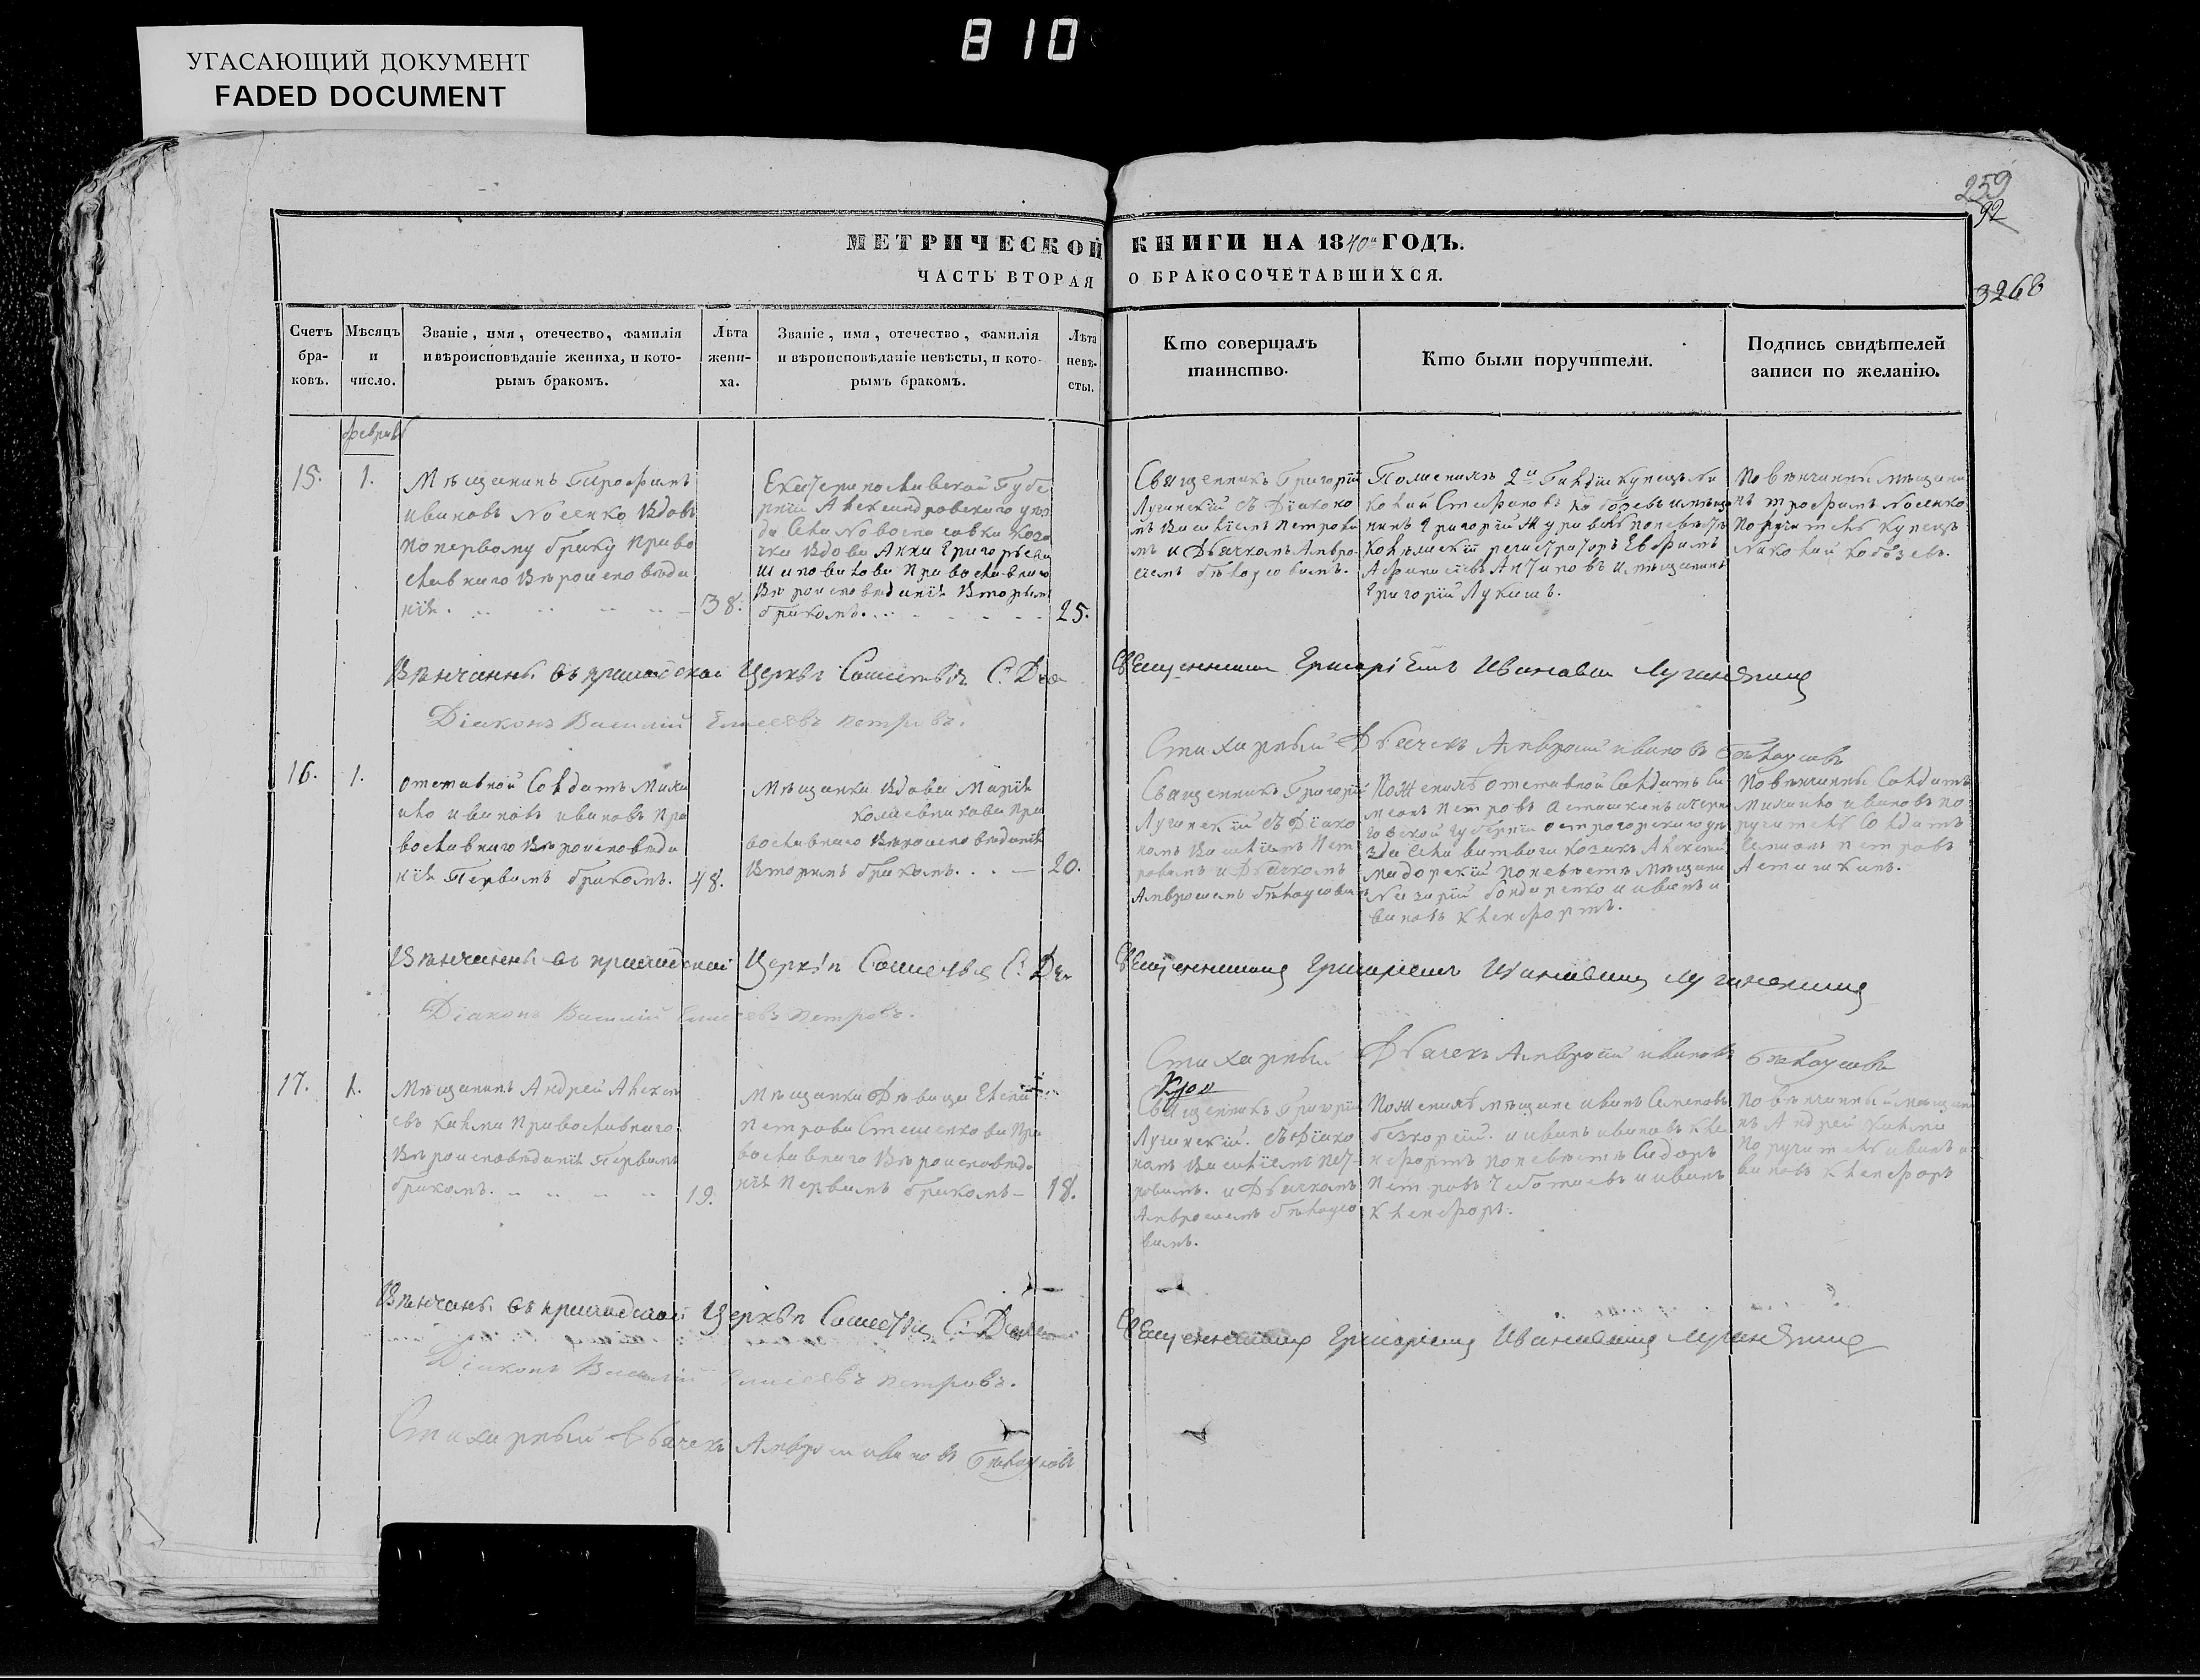 810
УГАСАЮЩИЙ ДОКУМЕНТ
FADED DOCUMENT
259
92
3268
МЕТРИЧЕСКОЙ КНИГИ НА 1840й ГОДЪ.
ЧАСТЬ ВТОРАЯ О БРАКОСОЧЕТАВШИХСЯ.
Счетъ бра-ковъ.
Мѣсяцъ и число.
Званіе, имя, отечество, фамилія
и вѣроисповѣданіе жениха, и кото-
рымъ бракомъ.
Лѣта жени-ха.
Званіе, имя, отечество, фамилія
и вѣроисповѣданіе невѣсты, и кото-
рымъ бракомъ.
Лѣта невѣ-сты.
Кто совершалъ
таинство.
Кто были поручители.
Подпись свидѣтелей
записи по желанію.
15.
1.
Мѣщанинъ Трофимъ
Ивановъ Носенко вдовъ
по первому браку Право
славнаго Вѣроисповѣда
нія.
38.
Екатеринославской Губе
рніи Александровскаго уѣз
да Села Новоспасовки коза
чка вдова Анна Григорьева
Шаповалова Православнаго
Вѣроисповѣданія Вторымъ
бракомъ.
25.
Священникъ Григорій
Лучинскій съ Діаконо
мъ Василіемъ Петровы
мъ и Дьячкомъ Амвро
сіемъ Бѣлоусовымъ.
По женихѣ 2й Гильдіи купецъ Ни
колай Стефановъ Кобозевъ и мѣща
нинъ Григорій Журавль по невѣстѣ
Коллежскій регистраторъ Евфимъ
Григорій Лукашъ.
Повѣнчанный мѣщани
нъ Трофимъ Носенко
Поручитель купецъ
Николай Кобозевъ.
Вѣнчанны въ приходской Церкви Сошествія С. Духа Священникомъ Григоріемъ Ивановымъ Лучинскимъ
Діаконъ Василій Елисеевъ Петровъ.
Стихарный Дьячекъ Амвросій Ивановъ Бѣлоусовъ
16.
1.
Отставной Солдатъ Миха
ило Ивановъ Ивановъ Пра
вославнаго Вѣроисповѣда
нія Первымъ бракомъ.
48.
Мѣщанка Вдова Марія
Пра
вославнаго Вѣроисповѣданія
Вторымъ бракомъ.
20.
Священникъ Григорій
Лучинскій съ Діако
номъ Василіемъ Пет
ровымъ и Дьячкомъ
Амвросіемъ Бѣлоусовымъ
По женихѣ отставной Солдатъ Си
меонъ Петровъ Асташкинъ и Черни
говской Губерніи
козакъ Алексѣй
по невѣстѣ Мѣщане
Назарій Бондаренко и Иванъ И
вановъ Кленфортъ.
Повѣнчанный Солдатъ
Михайло Ивановъ По
ручитель Солдатъ
Симеонъ Петровъ
Асташкинъ.
Вѣнчанны въ приходской Церкви Сошествія С. Духа Священникомъ Григоріемъ Ивановымъ Лучинскимъ
Діаконъ Василій Елисеевъ Петровъ.
Стихарный Дьячекъ Амвросій Ивановъ Бѣлоусовъ
17.
1.
Мѣщанинъ Андрей Алексѣ
евъ Калма Православнаго
Вѣроисповѣданія Первымъ
бракомъ.
19.
Мѣщанка Дѣвица
Петрова Стешенкова Пра
вославнаго Вѣроисповѣда
нія Первымъ бракомъ
18.
Священникъ Григорій
Лучинскій. съ Діако
номъ Василіемъ Пет
ровымъ. и Дьячкомъ
Амвросіемъ Бѣлоусо
вымъ.
По женихѣ мѣщане Иванъ Семеновъ
и Иванъ Ивановъ Кле
нфортъ по невѣстѣ Сидоръ
Петровъ Чеботаевъ и Иванъ
Кленфоръ.
Повѣнчанный мѣщани
нъ Андрей Калма
Поручитель Иванъ И
вановъ Кленфоръ
Вѣнчаны въ приходской Церкви Сошествія С. Духа Священникомъ Григоріемъ Ивановымъ Лучинскимъ
Діаконъ Василій Елисеевъ Петровъ.
Стихарный Дьячекъ Амвросій Ивановъ Бѣлоусовъ